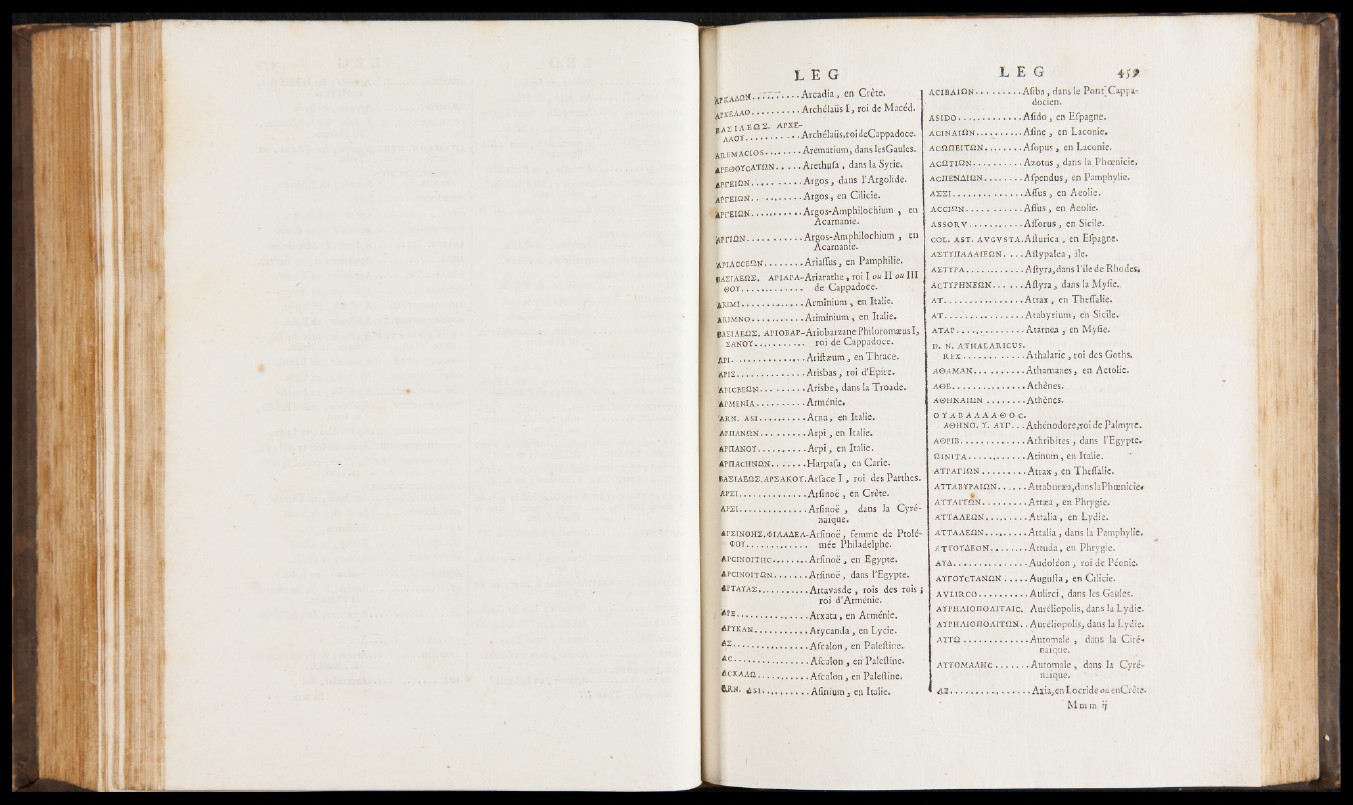 LEG
ΑΡΚΑΔΩΝ......... Arcadia, en Crète.
ΑΡΧΕΛΑΟ.......... Archélaüs I, roi de Macéd.
ΒΑΣΙΛΕΩΣ. ΑΡΧΕ-
ΛΑΟΥ........... Archélaüs, roi de Cappadoce.
AREMACIOS....... Arematium, dans les Gaules.
ΑΡΕΘΟΥCΑΤΩΝ..... Arethuſa, dans la Syrie.
ΑΡΓΕΙΩΝ..... ..... Argos, dans l'Argolide.
ΑΡΓΕΙΩΝ.. ........ Argos, en Cilicie.
ΑΡΓΕΙΩΝ.......... Argos-Amphilochium, en
Acarnanie.
ΑΡΓΙΩΝ........... Argos-Amphilochium, en
Acarnanie.
ΑΡΙΑCCΕΩΝ........ Ariaſſus, en Pamphilie.
ΒΑΣΙΛΕΩΣ. ΑΡΙΑΡΑ- Ariarathe, roi I ou II ou III
ΘΟΥ............ de Cappadoce.
ARIMI............ Arminium, en Italie.
ARIMNO.......... Ariminium, en Italie.
ΒΑΣΙΛΕΩΣ. ΑΡΙΟΒΑΡ- Ariobarzane Philoromæus I,
ΖΑΝΟΥ.......... roi de Cappadoce.
ΑΡΙ............... Ariſtæum, en Thrace.
ΑΡΙΣ.............. Arisbas, roi d'Epire.
ΑΡΙCΒΕΩΝ......... Arisbe, dans la Troade.
ΑΡΜΕΝΙΑ.......... Arménie.
ARN. ASI.......... Arna, en Italie.
ΑΡΠΑΝΩΝ......... Arpi, en Italie.
ΑΡΠΑΝΟΥ.......... Arpi, en Italie.
ΑΡΠΑCΗΝΩΝ....... Harpaſa, en Carie.
ΒΑΣΙΛΕΩΣ. ΑΡΣΑΚΟΥ. Arſace I, roi des Parthes.
ΑΡΣΙ.............. Arſinoë, en Crète.
ΑΡΣΙ.............. Arſinoë, dans la Cyré-
naïque.
ΑΡΣΙΝΟΗΣ. ΦΙΛΑΔΕΛ- Arſinoë, femme de Ptolé-
ΦΟΥ........... mée Philadelphe.
ΑΡCΙΝΟΙΤΗC........ Arſinoë, en Egypte.
ΑΡCΙΝΟΙΤΩΝ....... Arſinoë, dans l'Egypte.
ΑΡΤΑΥΑΣ........... Artavasde, rois des rois;
roi d'Arménie.
ΑΡΞ............... Arxata, en Arménie.
ΑΡΥΚΑΝ........... Arycanda, en Lycie.
ΑΣ................ Aſcalon, en Paleſtine.
ΑC................ Aſcalon, en Paleſtine.
ΑCΚΑΛΩ........... Aſcalon, en Paleſtine.
ARN. ASI.......... Aſinium, en Italie.
LEG 459
ΑCΙΒΑΙΩΝ......... Aſiba, dans le Pont Cappa-
docien.
ASIDO............. Aſido, en Eſpagne.
ΑCΙΝΑΙΩΝ.......... Aſine, en Laconie.
ΑCΩΠΕΙΤΩΝ........ Aſopus, en Laconie.
ΑCΩΤΙΩΝ.......... Azotus, dans la Phœnicie.
ΑCΠΕΝΔΙΩΝ........ Aſpendus, en Pamphylie.
ΑΣΣΙ.............. Aſſus, en Aeolie.
ΑCCΙΩΝ........... Aſſus, en Aeolie.
ASSORV........... Aſſorus, en Sicile.
COL. AST. AVGVSTA. Aſturica, en Eſpagne.
ΑΣΤΥΠΑΛΑΙΕΩΝ.... Aſtypalea, île.
ΑΣΤΥΡΑ............ Aſtyra, dans l'île de Rhodes.
ΑCΤΥΡΗΝΕΩΝ...... Aſtyra, dans la Myſie.
ΑΤ................ Atrax, en Theſſalie.
ΑΤ................ Atabyrium, en Sicile.
ΑΤΑΡ.............. Atarnea, en Myſie.
D. N. ATHALARICUS.
REX............ Athalaric, roi des Goths.
ΑΘΑΜΑΝ.......... Athamanes, en Aetolie.
ΑΘΕ............... Athènes.
ΑΘΗΝΑΙΩΝ........ Athènes.
ΟΥΑΒΑΛΛΑΘΟC.
ΑΘΗΝΟ. Υ. ΑΥΓ... Athénodore, roi de Palmyre.
ΑΘΡΙΒ............. Athribites, dans l'Egypte.
ΩΙΝΙΤΑ............ Atinum, en Italie.
ΑΤΡΑΓΙΩΝ......... Atrax, en Theſſalie.
ΑΤΤΑΒΥΡΑΙΩΝ...... Attaburæa, dans la Phœnicie.
ΑΤΤΑΙΤΩΝ......... Attæa, en Phrygie.
ΑΤΤΑΛΕΩΝ......... Attalia, en Lydie.
ΑΤΤΑΛΕΩΝ......... Attalia, dans la Pamphylie.
ΑΤΓΟΥΔΕΩΝ........ Attuda, en Phrygie.
ΑΥΔ............... Audoléon, roi de Péonie.
ΑΥΓΟΥCΤΑΝΩΝ..... Auguſta, en Cilicie.
AVLIRCO.......... Aulirci, dans les Gaules.
ΑΥΡΗΛΙΟΠΟΛΙΤΑΙC. Auréliopolis, dans la Lydie.
ΑΥΡΗΛΙΟΠΟΛΙΤΩΝ.. Auréliopolis, dans la Lydie.
ΑΥΤΩ............. Automale, dans la Ciré-
naïque.
ΑΥΤΟΜΑΛΗC....... Automale, dans la Cyré-
naïque.
ΑΞ................ Axia, en Locride ou en Crète.
Mmm ij